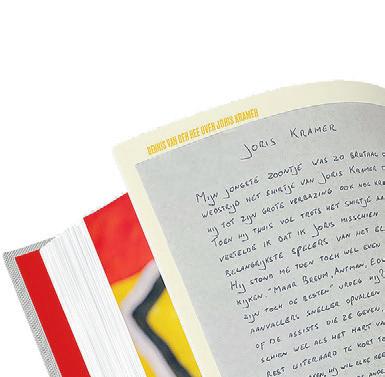 DENNIS VAN DER HEE OVER JORIS KRAMER
JORIS KRAMER
MIJN JONGSTE ZOONTJE WAS ZO BRUTAAL
WEDSTRIJD HET SHIRTJE VAN JORIS KRAMER
HIJ TOT ZIJN GROTE VERBAZING OOK NOG
TOEN HIJ THUIS VOL TROTS HET SHIRTJE
VERTELDE IK DAT IK JORIS MISSCHIEN
BELANGRIJKSTE SPELERS VAN HET
HIJ STOND ME TOEN TOCH WEL EVEN
KIJKEN. "MAAR BREUM, ANTMAN,
ZIJN TOCH DE BESTEN" VROEG
AANVALLERS SNELLER OPVALLEN
OF DE ASSISTS DIE ZE GEVEN,
SCHIEN WEL ALS HET HART
REST UITERAARD TE KORT
HIJ WIL ELKE